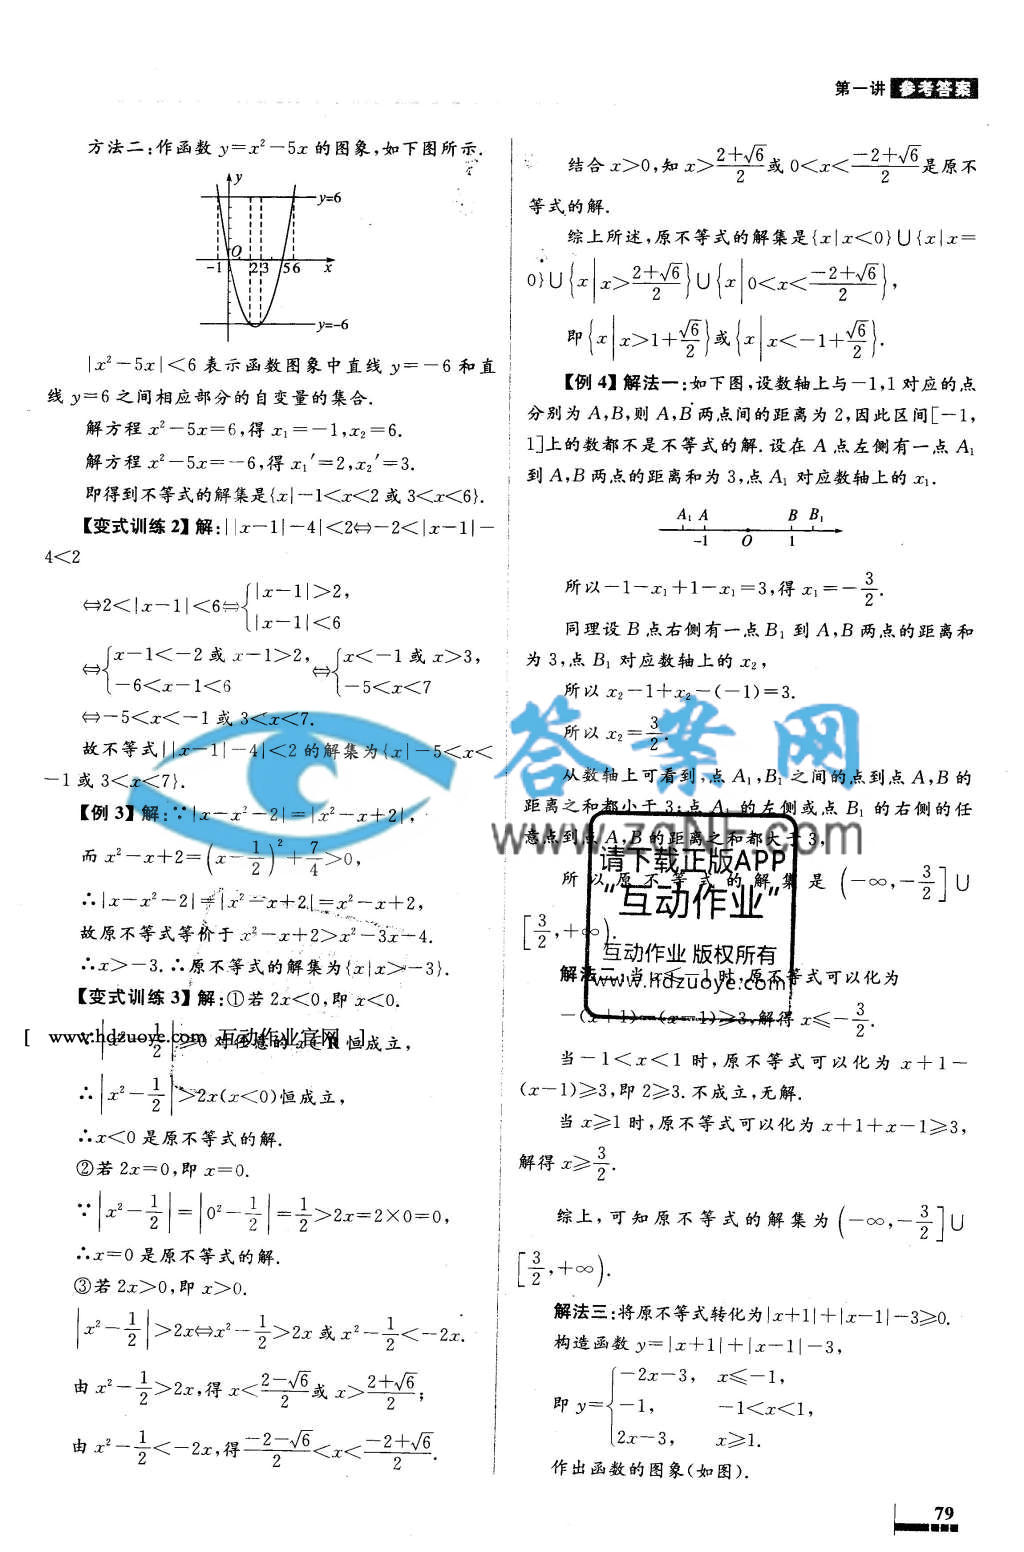 第一讲 参考答案
方法二:作函数 y=x²-5x 的图象,如下图所示.
y
y=6
O
-1 2 3 5 6 x
y=-6
|x²-5x|<6 表示函数图象中直线 y=-6 和直
线 y=6 之间相应部分的自变量的集合.
解方程 x²-5x=6,得 x₁=-1,x₂=6.
解方程 x²-5x=-6,得 x₁′=2,x₂′=3.
即得到不等式的解集是{x|-1<x<2 或 3<x<6}.
【变式训练 2】解:||x-1|-4|<2⇔-2<|x-1|-
4<2
⇔2<|x-1|<6⇔{|x-1|>2,
|x-1|<6
⇔{x-1<-2 或 x-1>2, ⇔{x<-1 或 x>3,
-6<x-1<6 -5<x<7
⇔-5<x<-1 或 3<x<7.
故不等式||x-1|-4|<2 的解集为{x|-5<x<
-1 或 3<x<7}.
【例 3】解:∵|x-x²-2|=|x²-x+2|,
而 x²-x+2=(x-1/2)²+7/4>0,
∴|x-x²-2|=|x²-x+2|=x²-x+2,
故原不等式等价于 x²-x+2>x²-3x-4.
∴x>-3.∴原不等式的解集为{x|x>-3}.
【变式训练 3】解:①若 2x<0,即 x<0.
[ www.hdzuoye.com 互动作业官网 ]
∵|x²-1/2|≥0 对任意的 x∈R 恒成立,
∴|x²-1/2|>2x(x<0)恒成立,
∴x<0 是原不等式的解.
②若 2x=0,即 x=0.
∵|x²-1/2|=|0²-1/2|=1/2>2x=2×0=0,
∴x=0 是原不等式的解.
③若 2x>0,即 x>0.
|x²-1/2|>2x⇔x²-1/2>2x 或 x²-1/2<-2x.
由 x²-1/2>2x,得 x<(2-√6)/2 或 x>(2+√6)/2;
由 x²-1/2<-2x,得(-2-√6)/2<x<(-2+√6)/2.
结合 x>0,知 x>(2+√6)/2 或 0<x<(-2+√6)/2 是原不
等式的解.
综上所述,原不等式的解集是{x|x<0}∪{x|x=
0}∪{x|x>(2+√6)/2}∪{x|0<x<(-2+√6)/2},
即{x|x>1+√6/2}或{x|x<-1+√6/2}.
【例 4】解法一:如下图,设数轴上与-1,1 对应的点
分别为 A,B,则 A,B 两点间的距离为 2,因此区间[-1,
1]上的数都不是不等式的解.设在 A 点左侧有一点 A₁
到 A,B 两点的距离和为 3,点 A₁ 对应数轴上的 x₁.
A₁ A B B₁
-1 O 1
所以-1-x₁+1-x₁=3,得 x₁=-3/2.
同理设 B 点右侧有一点 B₁ 到 A,B 两点的距离和
为 3,点 B₁ 对应数轴上的 x₂,
所以 x₂-1+x₂-(-1)=3.
所以 x₂=3/2.
答案网
从数轴上可看到,点 A₁,B₁ 之间的点到点 A,B 的
距离之和都小于 3;点 A₁ 的左侧或点 B₁ 的右侧的任
www.zqNF.com
意点到点 A,B 的距离之和都大于 3,
请下载正版APP
“互动作业”
互动作业 版权所有
www.hdzuoye.com
所以原不等式的解集是 (-∞,-3/2]∪
[3/2,+∞).
解法二:当 x≤-1 时,原不等式可以化为
-(x+1)-(x-1)≥3,解得 x≤-3/2.
当-1<x<1 时,原不等式可以化为 x+1-
(x-1)≥3,即 2≥3.不成立,无解.
当 x≥1 时,原不等式可以化为 x+1+x-1≥3,
解得 x≥3/2.
综上,可知原不等式的解集为 (-∞,-3/2]∪
[3/2,+∞).
解法三:将原不等式转化为|x+1|+|x-1|-3≥0.
构造函数 y=|x+1|+|x-1|-3,
即 y={-2x-3, x≤-1,
-1, -1<x<1,
2x-3, x≥1.
作出函数的图象(如图).
79